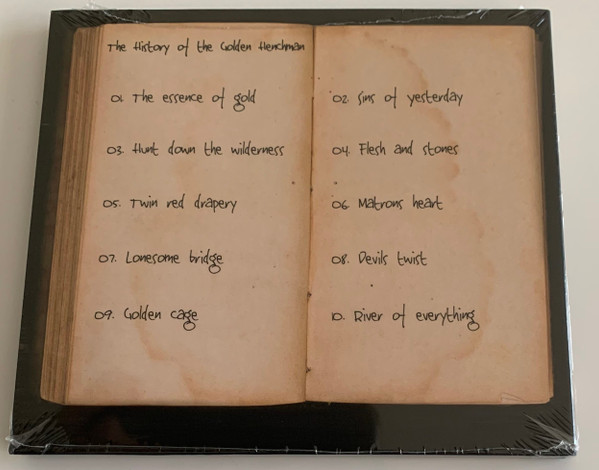 The History of the Golden Henchman
01. The essence of gold
02. Sins of yesterday
03. Hunt down the wilderness
04. Flesh and stones
05. Twin red drapery
06. Matrons heart
07. Lonesome bridge
08. Devils twist
09. Golden cage
10. River of everything